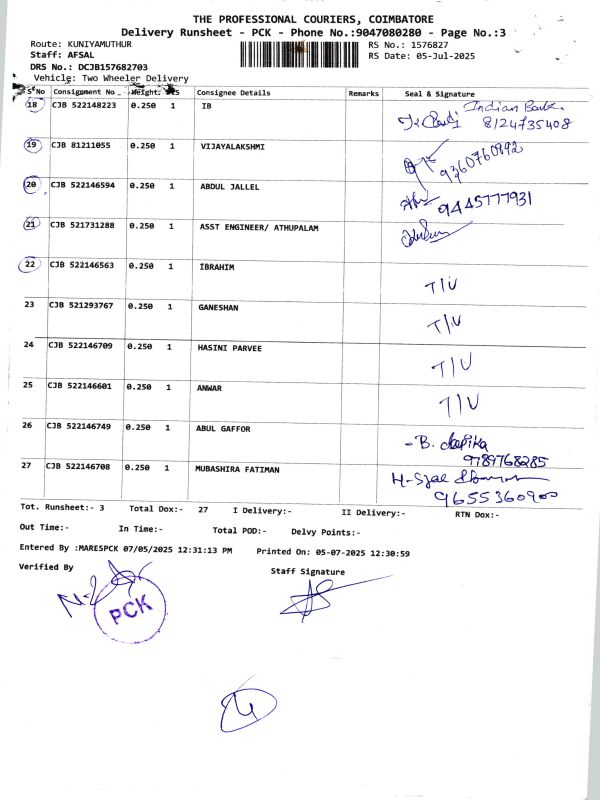 THE PROFESSIONAL COURIERS, COIMBATORE
Delivery Runsheet - PCK - Phone No.:9047080280 - Page No.:3
Route: KUNIYAMUTHUR RS No.: 1576827
Staff: AFSAL RS Date: 05-Jul-2025
DRS No.: DCJB157682703
Vehicle: Two Wheeler Delivery
S No Consignment No Weight Consignee Details Remarks Seal & Signature
18 CJB 522148223 0.250 1 IB Indian Bank
8124735408
19 CJB 81211055 0.250 1 VIJAYALAKSHMI 9360760892
20 CJB 522146594 0.250 1 ABDUL JALLEL 9445777931
21 CJB 521731288 0.250 1 ASST ENGINEER/ ATHUPALAM
22 CJB 522146563 0.250 1 IBRAHIM T/U
23 CJB 521293767 0.250 1 GANESHAN T/U
24 CJB 522146709 0.250 1 HASINI PARVEE T/U
25 CJB 522146601 0.250 1 ANWAR T/U
26 CJB 522146749 0.250 1 ABUL GAFFOR - B. depika
9789768285
27 CJB 522146708 0.250 1 MUBASHIRA FATIMAN
9655360900
Tot. Runsheet:- 3 Total Dox:- 27 I Delivery:- II Delivery:- RTN Dox:-
Out Time:- In Time:- Total POD:- Delvy Points:-
Entered By :MARESPCK 07/05/2025 12:31:13 PM Printed On: 05-07-2025 12:30:59
Verified By Staff Signature
PCK
4